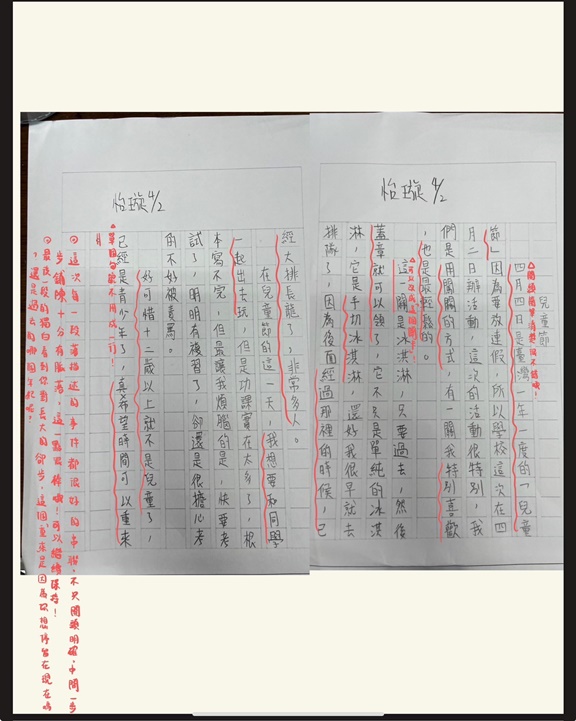 怡璇4/2
兒童節
四月四日是臺灣一年一度的「兒童
節」因為要放連假,所以學校這次在四
月二日辦活動,這次的活動很特別,我
們是用闖關的方式,有一關我特別喜歡
,也是最輕鬆的。
這一關是冰淇淋,只要過去,然後
蓋章就可以領了,它不只是單純的冰淇
淋,它是手切冰淇淋,還好我很早就去
排隊了,因為後面經過那裡的時候,已
△開頭簡單清楚,很不錯哦!
△可以改成這個關卡!
怡璇4/2
經大排長龍了,非常多人。
在兒童節的這一天,我想要和同學
一起出去玩,但是功課實在太多了,根
本寫不完,但最讓我煩腦的是,快要考
試了,明明有複習了,卻還是很擔心考
的不好被責罵。
好可惜十二歲以上就不是兒童了,
已經是青少年了,真希望時間可以重來
△單個句號不用成一行!
◎這次每一段落描述的事件都很好的串聯,不只開頭明確,中間一步
步鋪陳十分有脈絡,這一點很棒哦!可以繼續保持!
◎最後一段的獨白看到你對長大的卻步,這個重來是因為你想停留在現在嗎
,還是過去的哪個年紀呢?